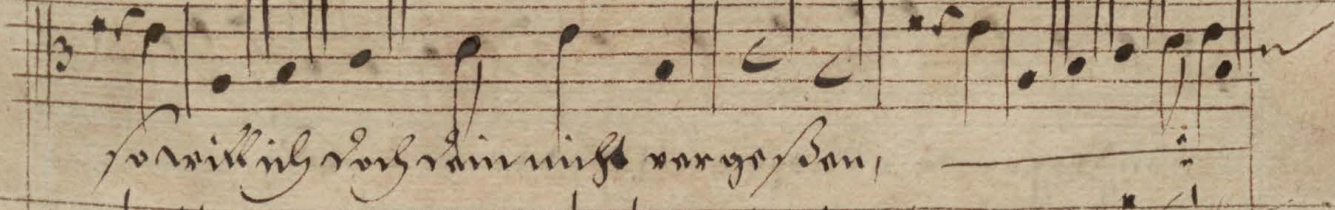 so will ich doch dein nicht vergeßen,